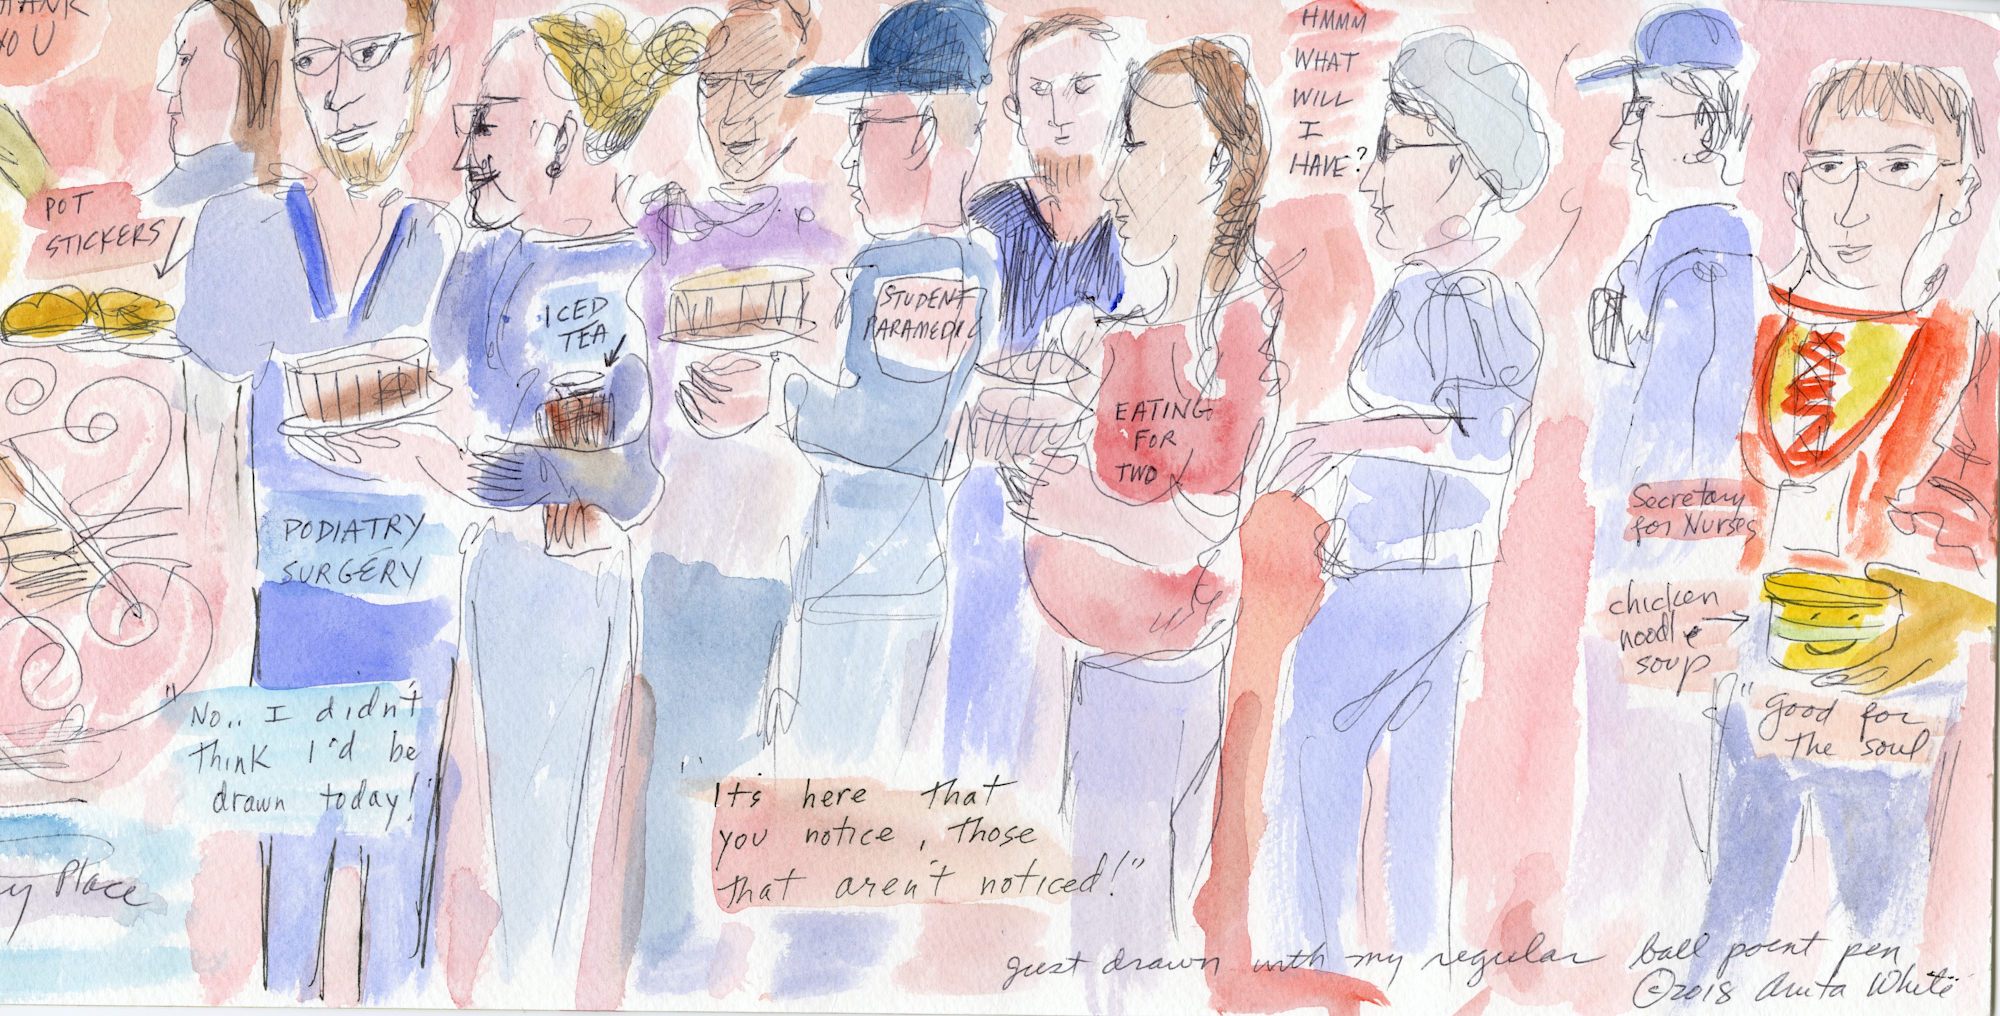 THANK
YOU
POT
STICKERS
ICED
TEA
STUDENT
PARAMEDIC
HMMM
WHAT
WILL
I
HAVE?
EATING
FOR
TWO
PODIATRY
SURGERY
Secretary
for Nurses
chicken
noodle
soup
"Good for
the soul
"No.. I didn't
think I'd be
drawn today!"
"It's here that
you notice, those
that aren't noticed!"
Place
just drawn with my regular ball point pen
©2018 Anita White